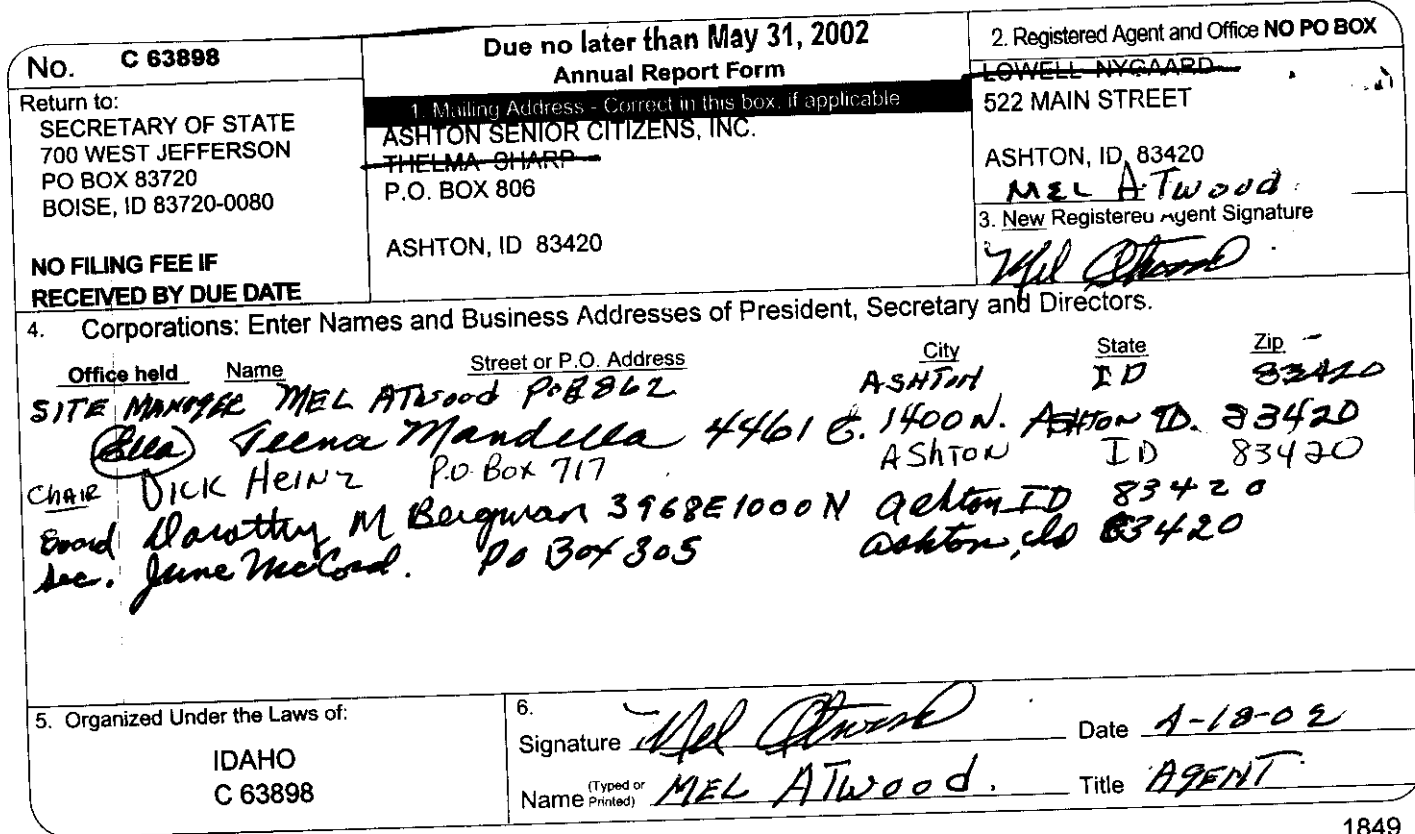 No. C 63898
Return to:
SECRETARY OF STATE
700 WEST JEFFERSON
PO BOX 83720
BOISE, ID 83720-0080
NO FILING FEE IF
RECEIVED BY DUE DATE
Due no later than May 31, 2002
Annual Report Form
1. Mailing Address - Correct in this box, if applicable
ASHTON SENIOR CITIZENS, INC.
THELMA SHARP
P.O. BOX 806
ASHTON, ID 83420
2. Registered Agent and Office NO PO BOX
LOWELL NYGAARD
522 MAIN STREET
ASHTON, ID 83420
MEL ATwood
3. New Registered Agent Signature
Mel Atwood
4. Corporations: Enter Names and Business Addresses of President, Secretary and Directors.
Office held Name Street or P.O. Address City State Zip
SITE MANAGER MEL ATwood POB 862 ASHTON ID 83420
(Ella) Teena Mandella 4461 E. 1400 N. ASHTON ID. 83420
CHAIR DICK HEINZ P.O. Box 717 AShTON ID 83420
Board Dorothy M Bergman 3968E1000N Ashton ID 83420
Sec. June McCord. PO Box 305 Ashton, Id 83420
5. Organized Under the Laws of:
IDAHO
C 63898
6.
Signature Mel Atwood Date 4-18-02
Name (Typed or Printed) MEL ATwood. Title AGENT
1849